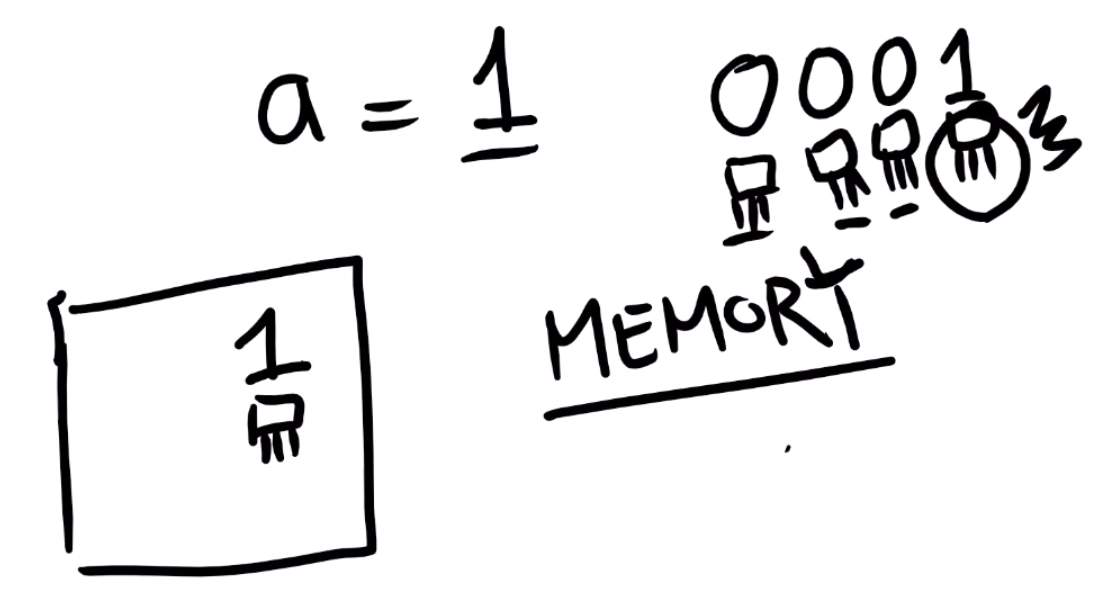 a = 1
0001
1
MEMORY